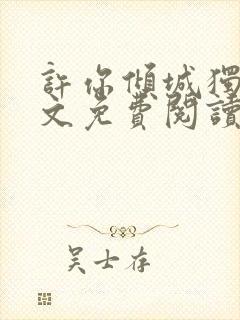 許你傾城獨
文免費閱讀
吴士存